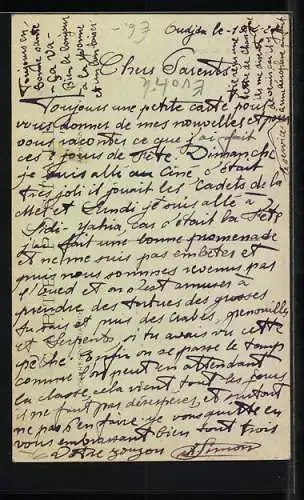 Toujours en
Bonne santé
- ça va -
Bien le bonjour
à la
Oudjda le
Chers Parents
Toujours une petite carte pour
vous donner de mes nouvelles et pour
vous raconter ce que j'ai fait
ces 2 jours de fête. Dimanche
je suis allé au Ciné, c'était
très joli il jouait les Cadets de la
Mer et Lundi je suis allé à
Sidi-Yahia, car c'était la fête
j'ai fait une bonne promenade
et ne me suis pas embêté et
puis nous sommes revenus par
l'Oued et on s'est amuser à
prendre des Tortues des grosses
et puis des Crabes, grenouilles
et Serpents si tu avais vu cette
pêche. Enfin on se passe le temps
comme l'on peut en attendant
la classe, cela vient tout les jours
il ne faut pas désespérer et surtout
ne pas s'en faire. je vous quitte en
vous embrassant bien tout trois
Votre garçon Simon